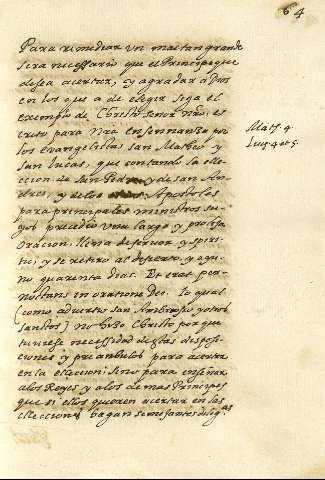 64
Para remediar un mal tan grande
sera necessario que el Principe que
desea acertar, y agradar a Dios
en los que a de elegir siga el
exemplo de Christo señor nro. es
crito para nra enseñanza por
los evangelistas san Matheo y
san Lucas, que contando la ele-
ccion de San Pedro y de san An-
dres, y de los Apostoles
para principales ministros su-
yos precedio una larga y prolija
oracion, llena de fervor y spiri-
tu; y se retiro al desierto, y ayu-
no quarenta dias. Et erat per-
noctans in oratione Dei. lo qual
(como advierte san Ambrosio y otros
santos) no hizo Christo por que
tuviese necessidad destas disposi-
ciones y preambulos para acertar
en la eleccion; sino para enseñar
a los Reyes y a los demas Principes
que si ellos quieren acertar en las
elecciones hagan semejantes dilig.as
Math. 4
Luc. 4 et 5